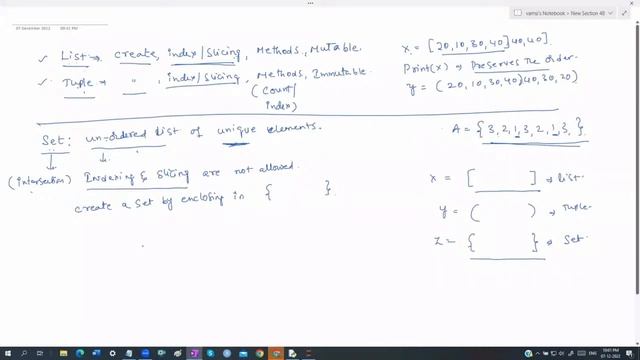 vamsi's Notebook > New Section 48
07 December 2022 09:41 PM
✓ List → create, index/slicing, Methods, Mutable.
✓ Tuple → " , index/slicing, Methods, Immutable.
(count/
index)
x = [20,10,30,40]40,40]
Print(x) → Preserves the order.
y = (20,10,30,40)40,30,20)
Set: un-ordered list of unique elements.
A = {3,2,1,3,2,1,3,}
(intersection) Indexing & slicing are not allowed.
create a set by enclosing in { }
x = [ ] → list.
y = ( ) → Tuple.
z = { } → Set.
10:01 PM
07-12-2022